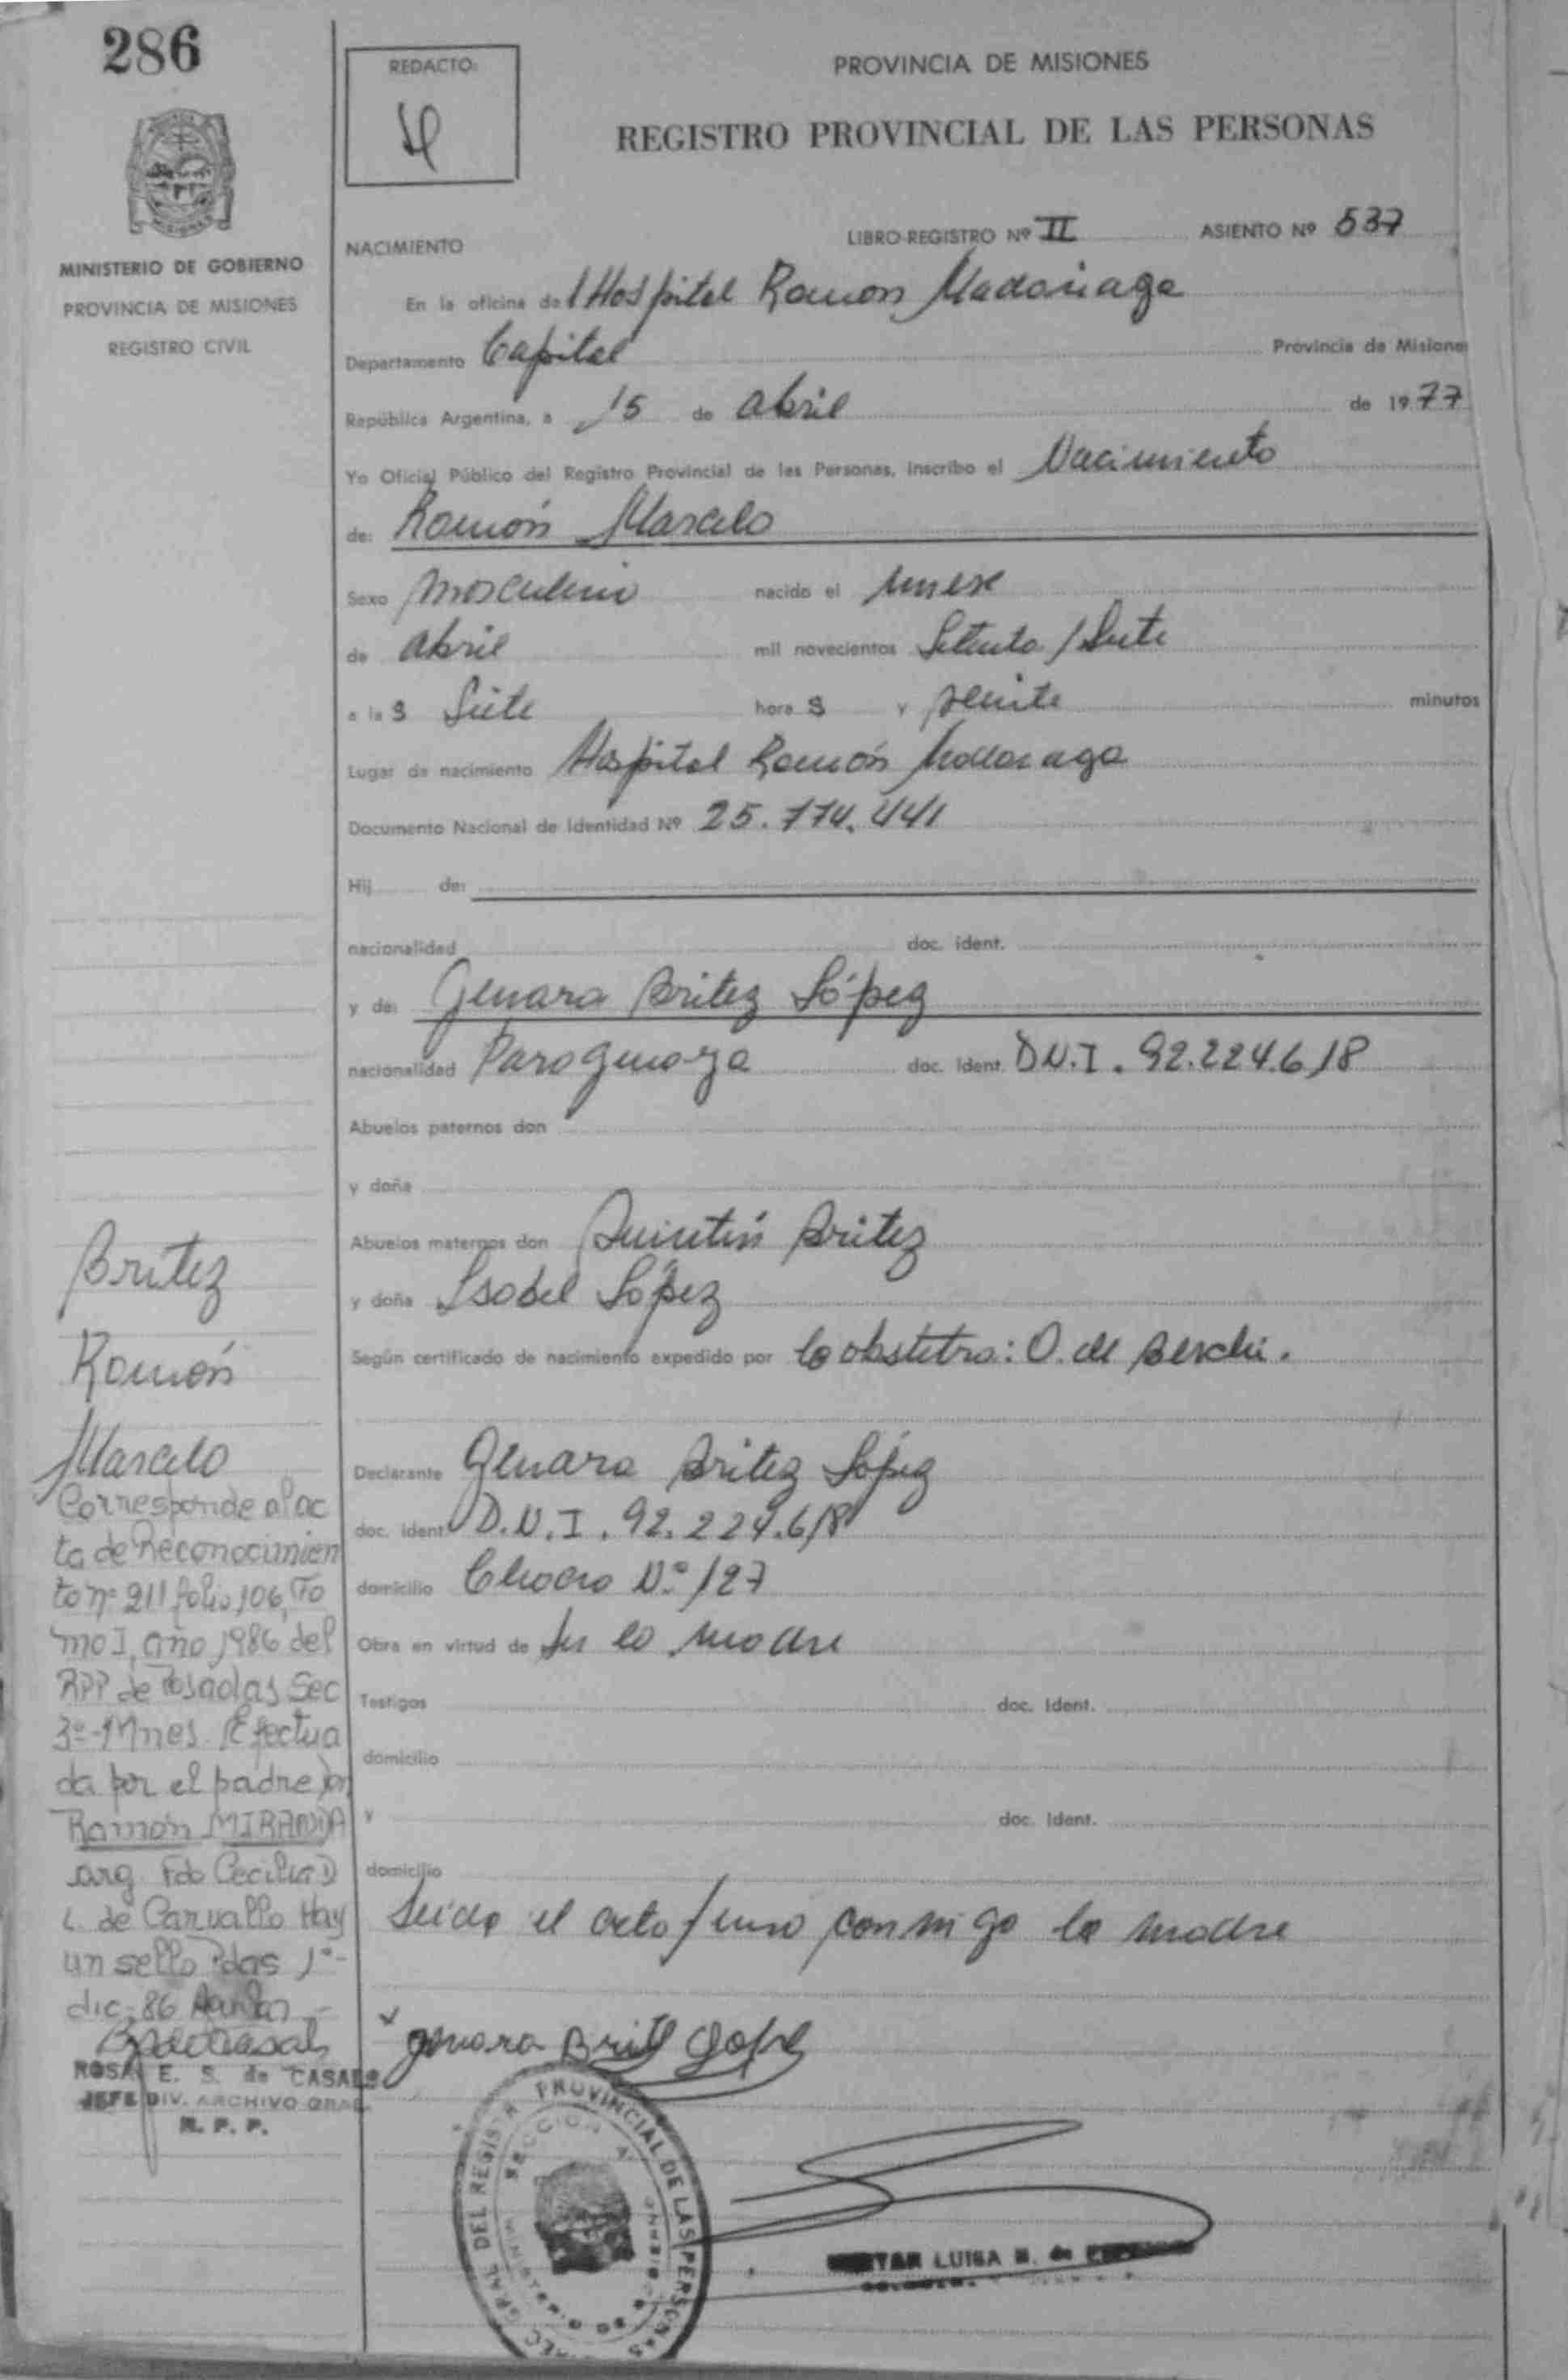 286
REDACTO:
PROVINCIA DE MISIONES
REGISTRO PROVINCIAL DE LAS PERSONAS
MINISTERIO DE GOBIERNO
PROVINCIA DE MISIONES
REGISTRO CIVIL
NACIMIENTO
LIBRO-REGISTRO Nº II ASIENTO Nº 537
En la oficina del Hospital Ramon Madariaga
Departamento Capital Provincia de Misiones
República Argentina, a 15 de abril de 1977
Yo Oficial Público del Registro Provincial de las Personas, inscribo el Nacimiento
de: Ramón Marcelo
Sexo masculino nacido el
de abril mil novecientos Setenta / Siete
a las Siete horas y veinte minutos
Lugar de nacimiento Hospital Ramón Madariaga
Documento Nacional de Identidad Nº 25.774.441
Hij de:
nacionalidad doc. ident.
y de: Genara Britez López
nacionalidad Paraguaya doc. Ident. D.N.I. 92.224.618
Abuelos paternos don
y doña
Abuelos maternos don Quintín Britez
y doña Isabel López
Según certificado de nacimiento expedido por la obstetra: O. de
Declarante Genara Britez López
doc. ident. D.N.I. 92.224.618
domicilio Chaco N.º 127
Obra en virtud de Ser la madre
Testigos doc. Ident.
domicilio
y doc. Ident.
domicilio
Leida el acta firma conmigo la madre
Genara Brit Lope
Britez
Ramón
Marcelo
Corresponde al ac
ta de Reconocimien
to nº 211 folio 106, To
mo I, año 1986 del
RPP de Posadas Sec
3º-Mnes. Efectua
da por el padre Dn
Ramón MIRANDA
arg. Fdo Cecilia D
L. de Carvallo Hay
un sello Pdas 1º-
dic-86
ROSA E. S. de CASALS
JEFE DIV. ARCHIVO GRAL.
R. P. P.
GRAL DEL REGISTRO PROVINCIAL DE LAS PERSONAS
SECCION
LUISA